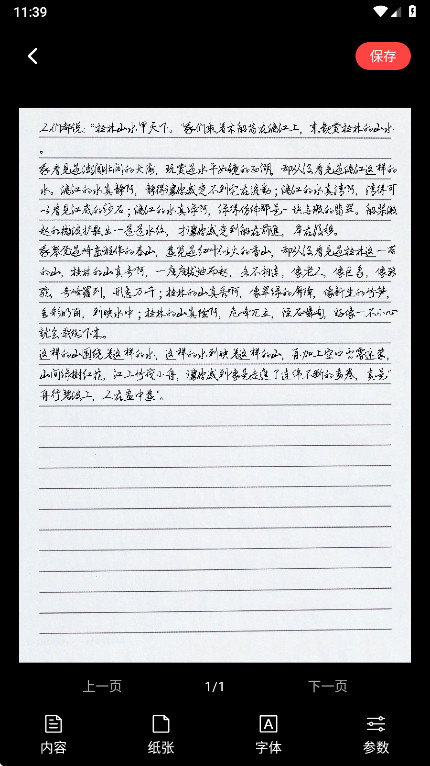 11:39
保存
人们都说："桂林山水甲天下。"我们乘着木船荡在漓江上，来观赏桂林的山水
。
我看见过波澜壮阔的大海，玩赏过水平如镜的西湖，却从没看见过漓江这样的
水。漓江的水真静啊，静得让你感觉不到它在流动；漓江的水真清啊，清得可
以看见江底的沙石；漓江的水真绿啊，绿得仿佛那是一块无瑕的翡翠。船桨激
起的微波扩散出一道道水纹，才让你感觉到船在前进，岸在后移。
我攀登过峰峦雄伟的泰山，游览过红叶似火的香山，却从没看见过桂林这一带
的山，桂林的山真奇啊，一座座拔地而起，各不相连，像老人，像巨象，像骆
驼，奇峰罗列，形态万千；桂林的山真秀啊，像翠绿的屏障，像新生的竹笋，
色彩明丽，倒映水中；桂林的山真险啊，危峰兀立，怪石嶙峋，好像一不小心
就会栽倒下来。
这样的山围绕着这样的水，这样的水倒映着这样的山，再加上空中云雾迷蒙，
山间绿树红花，江上竹筏小舟，让你感到像是走进了连绵不断的画卷，真是"
舟行碧波上，人在画中游"。
上一页
1/1
下一页
内容
纸张
字体
参数